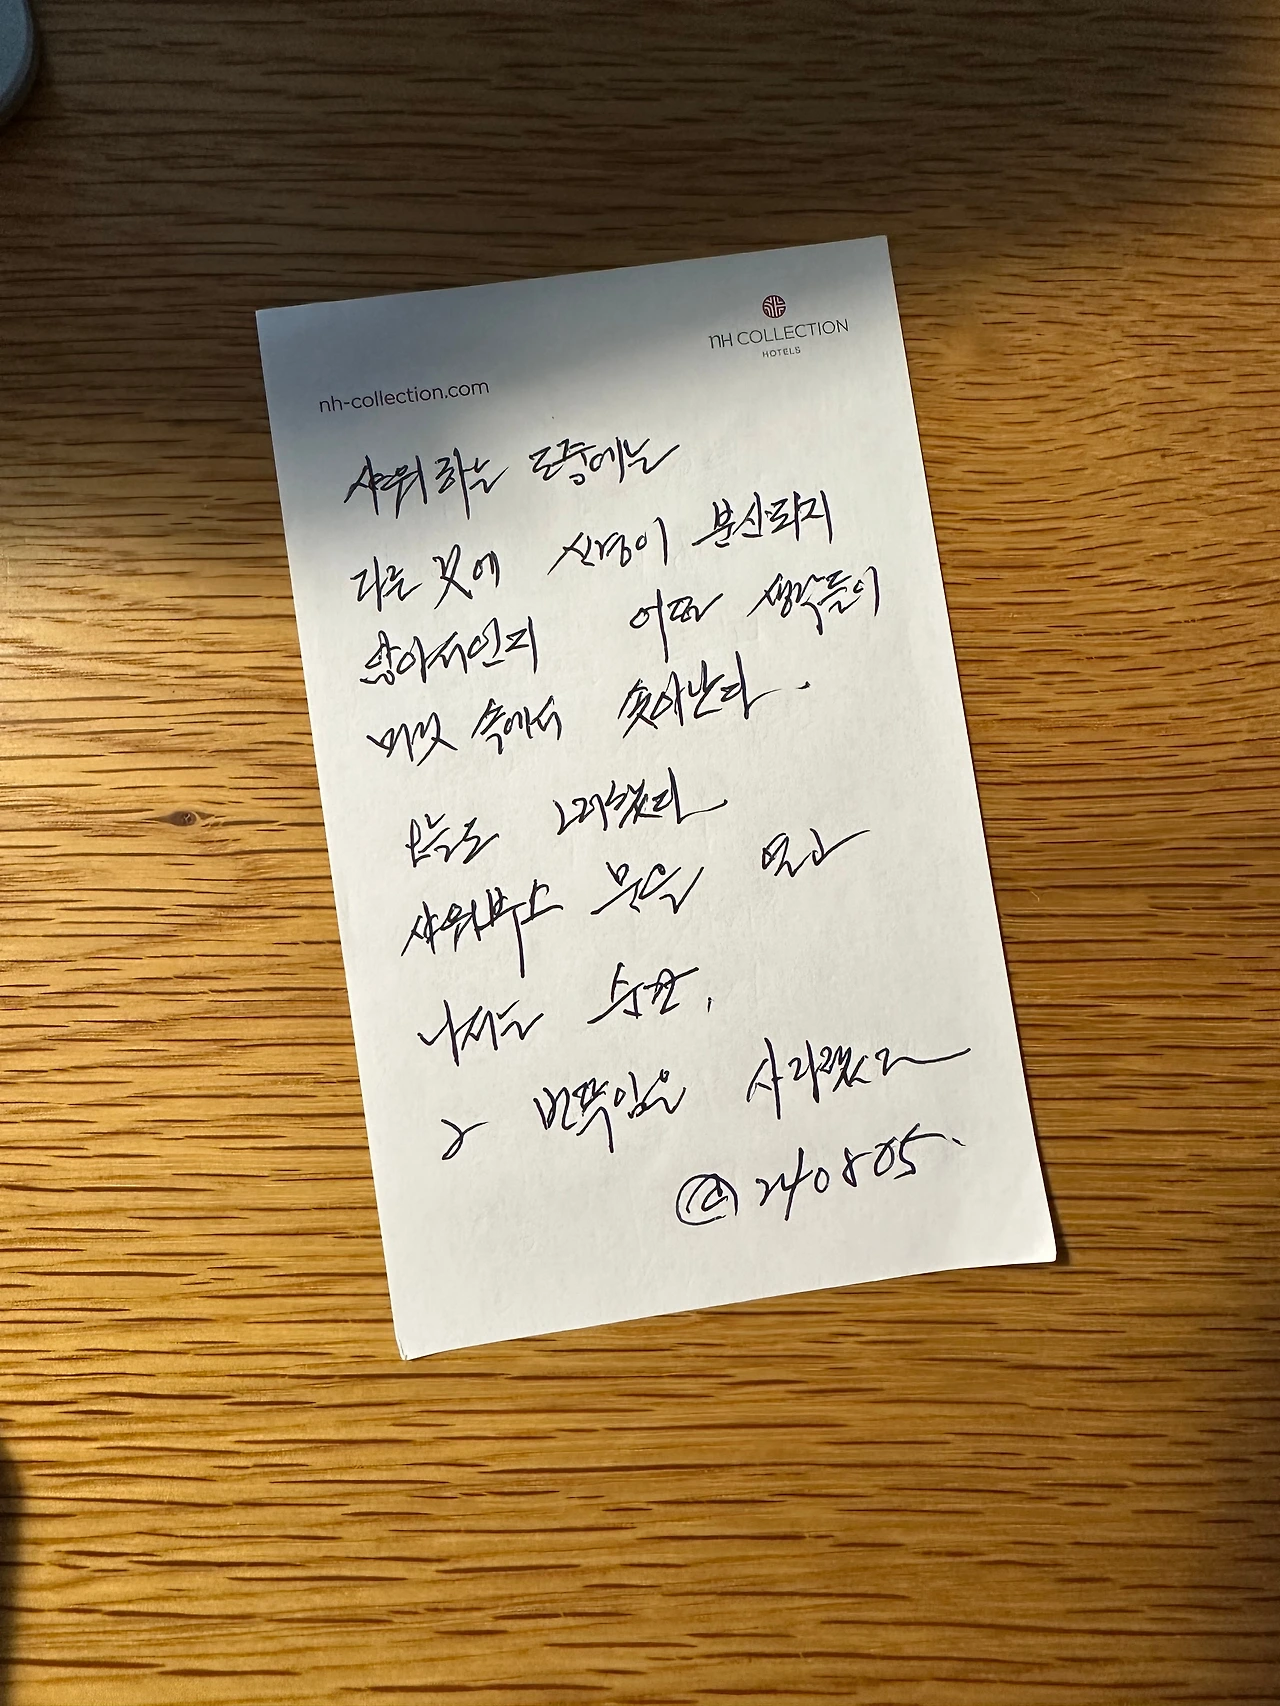 nH COLLECTION
HOTELS
nh-collection.com
샤워 하는 도중에는
다른 곳에 신경이 분산되지
않아서인지 어떤 생각들이
머릿 속에서 솟아난다.
오늘도 그러했다
샤워부스 문을 열고
나서는 순간,
그 번뜩임은 사라졌고
240805.